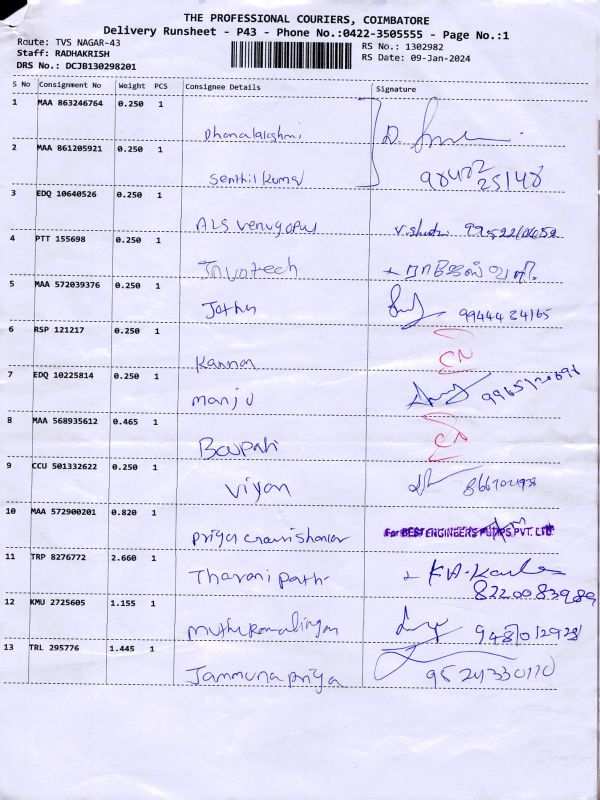 THE PROFESSIONAL COURIERS, COIMBATORE
Delivery Runsheet - P43 - Phone No.:0422-3505555 - Page No.:1
Route: TVS NAGAR-43 RS No.: 1302982
Staff: RADHAKRISH RS Date: 09-Jan-2024
DRS No.: DCJB130298201
S No Consignment No Weight PCS Consignee Details Signature
1 MAA 863246764 0.250 1
Dhanalakshmi D.
2 MAA 861205921 0.250 1
Senthil kumar 98422 25148
3 EDQ 10640526 0.250 1
ALS Venugopal
4 PTT 155698 0.250 1
Invotech
5 MAA 572039376 0.250 1
Jothy 99444 24165
6 RSP 121217 0.250 1
Kannan CN
7 EDQ 10225814 0.250 1
manju
8 MAA 568935612 0.465 1
Boopati CN
9 CCU 501332622 0.250 1
Viyan
10 MAA 572900201 0.820 1
Priya For BEST ENGINEERS PUMPS PVT. LTD.
11 TRP 8276772 2.660 1
Tharani
8220083989
12 KMU 2725605 1.155 1
Muthuramalingam
13 TRL 295776 1.445 1
Jammuna priya 9524330110